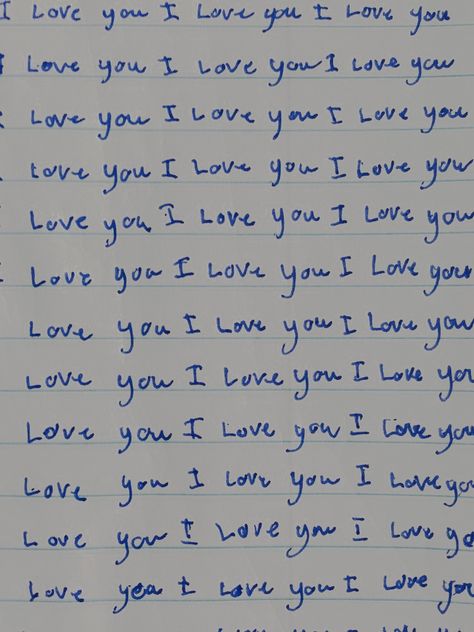 I Love you I Love you I Love you
I Love you I Love you I Love you
I Love you I Love you I Love you
Love you I Love you I Love you
Love you I Love you I Love you
I Love you I Love you I Love your
Love you I Love you I Love you
Love you I Love you I Love you
Love you I Love you I Love you
Love you I Love you I Love you
Love you I Love you I Love yo
Love you I Love you I Love you